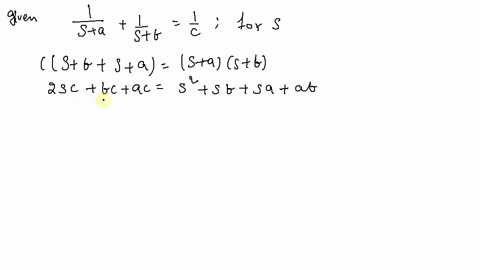 given 1/(s+a) + 1/(s+b) = 1/c ; for s
c(s+b+s+a) = (s+a)(s+b)
2sc + bc + ac = s² + sb + sa + ab